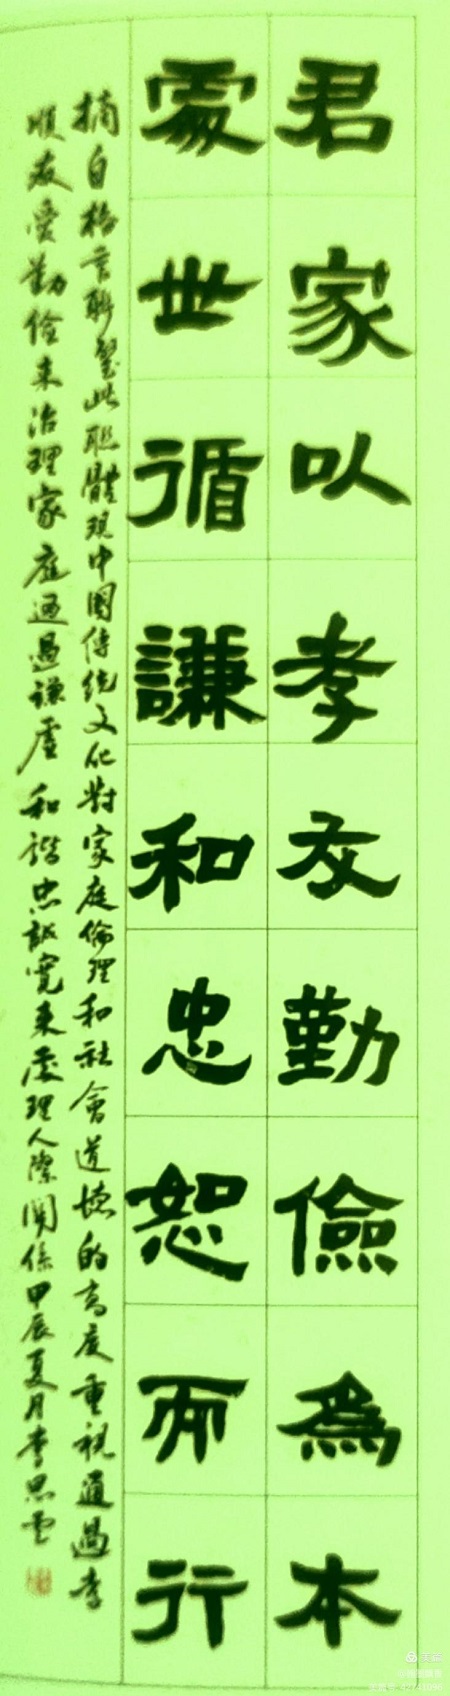 君家以孝友勤儉為本
處世循謙和忠恕而行
摘自格言聯璧此聯體現中國傳統文化對家庭倫理和社會道德的高度重視通過孝
順友愛勤儉來治理家庭通過謙虛和諧忠誠寬來處理人際關係甲辰夏月李思雲